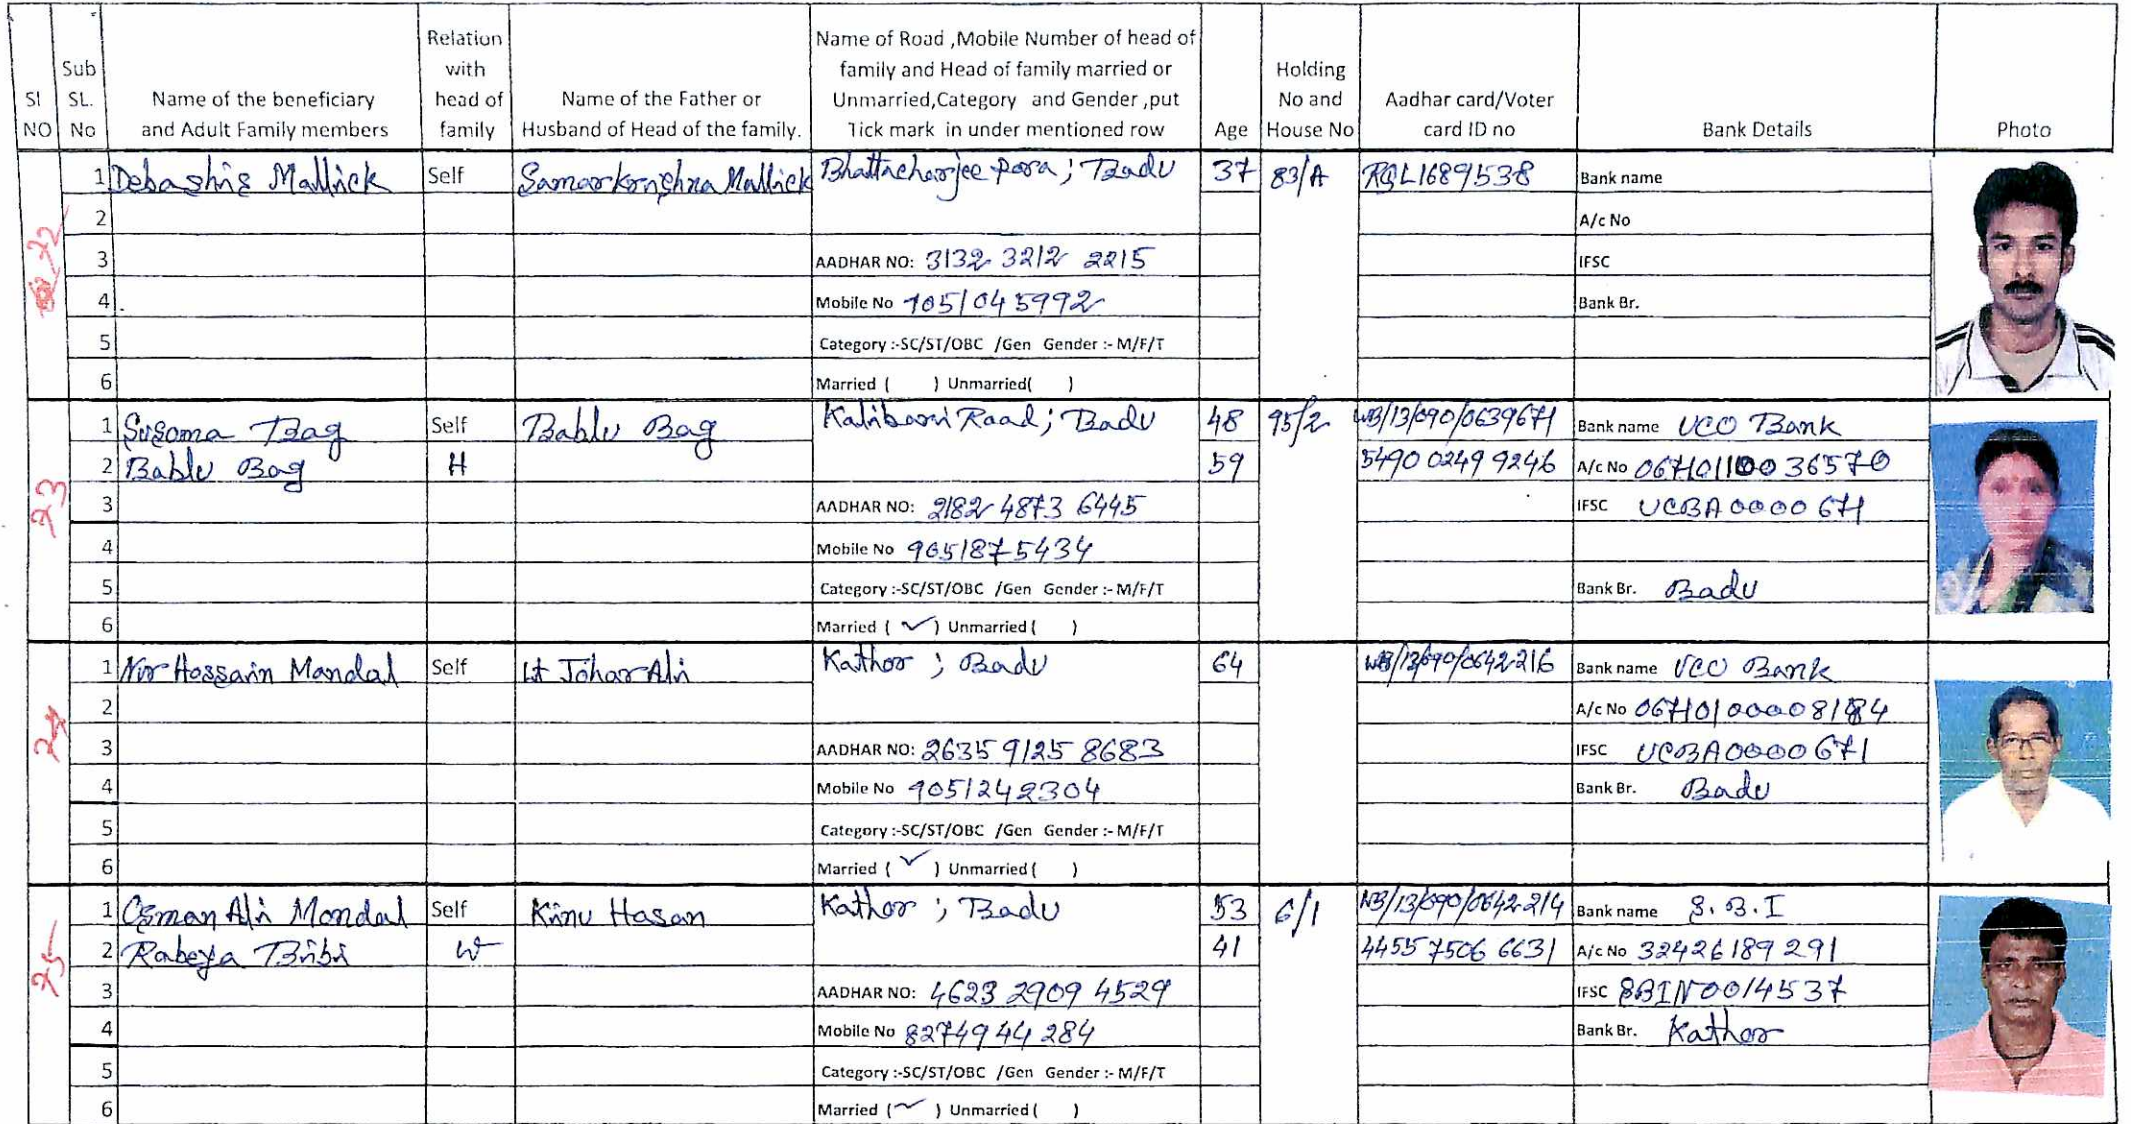 Sl NO
Sub SL. No
Name of the beneficiary and Adult Family members
Relation with head of family
Name of the Father or Husband of Head of the family.
Name of Road ,Mobile Number of head of family and Head of family married or Unmarried,Category and Gender ,put Tick mark in under mentioned row
Age
Holding No and House No
Aadhar card/Voter card ID no
Bank Details
Photo
22
1 Debashis Mallick Self Samarkrishna Mallick Bhattacharjee para ; Badu 37 83/A RQL1689538 Bank name
2 A/c No
3 AADHAR NO: 3132 3212 2215 IFSC
4 Mobile No 9051045992 Bank Br.
5 Category :-SC/ST/OBC /Gen Gender :- M/F/T
6 Married ( ) Unmarried( )
23
1 Susoma Bag Self Bablu Bag Kalibari Road ; Badu 48 95/2 WB/13/090/0639671 Bank name UCO Bank
2 Bablu Bag H 59 5490 0249 9246 A/c No 06710110036570
3 AADHAR NO: 2182 4873 6445 IFSC UCBA0000671
4 Mobile No 9051875434
5 Category :-SC/ST/OBC /Gen Gender :- M/F/T Bank Br. Badu
6 Married ( ✓ ) Unmarried ( )
24
1 Nur Hossain Mandal Self Lt Johar Ali Kathor ; Badu 64 WB/13/090/0642216 Bank name UCO Bank
2 A/c No 06710100008184
3 AADHAR NO: 2635 9125 8683 IFSC UCBA0000671
4 Mobile No 9051242304 Bank Br. Badu
5 Category :-SC/ST/OBC /Gen Gender :- M/F/T
6 Married ( ✓ ) Unmarried ( )
25
1 Osman Ali Mondal Self Kinu Hasan Kathor ; Badu 53 6/1 WB/13/090/0642214 Bank name S.B.I
2 Rabeya Bibi W 41 4455 7506 6631 A/c No 32426189291
3 AADHAR NO: 4623 2909 4529 IFSC SBIN0014537
4 Mobile No 8274944284 Bank Br. Kathor
5 Category :-SC/ST/OBC /Gen Gender :- M/F/T
6 Married ( ✓ ) Unmarried ( )